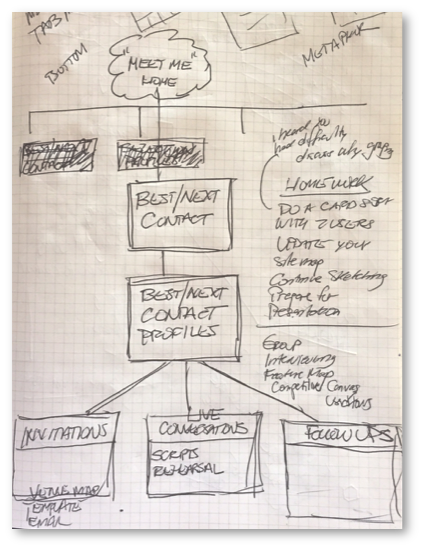 TABS
BOTTOM
METAPHOR
"MEET ME"
HOME
BEST/NEXT
CONTACT
BEST/NEXT
CONTACT
PROFILES
INVITATIONS
TEMPLATE
EMAIL
LIVE
CONVERSATIONS
SCRIPTS
REHEARSAL
FOLLOW UPS
i heard you
have difficulty
discovering apps
HOMEWORK
DO A CARD SORT
WITH 2 USERS
UPDATE YOUR
Sitemap
Continue Sketching
Prepare for
Presentation
GROUP
Interviewing
Feature Map
Competitive Canvas